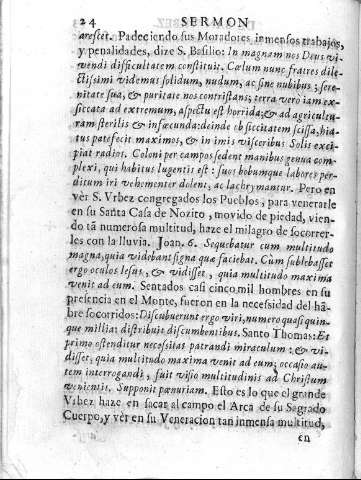 24 SERMON
arescet. Padeciendo sus Moradores inmensos trabajos,
y penalidades, dize S. Basilio: In magnam nos Deus vi-
vendi difficultatem constituit. Cœlum nunc, fratres dile-
ctissimi videmus solidum, nudum, ac sine nubibus; sere-
nitate sua, & puritate nos contristans; terra vero iam ex-
siccata ad extremum, aspectu est horrida; & ad agricultu-
ram sterilis & infæcunda: deinde ob siccitatem scissa, hia-
tus patefecit maximos, & in imis visceribus Solis exci-
piat radios. Coloni per campos sedent manibus genua com-
plexi, qui habitus lugentis est: suos bobumque labores per-
ditum iri vehementer dolent, ac lachrymantur. Pero en
vèr S. Vrbez congregados los Pueblos, para venerarle
en su Santa Casa de Nozito, movido de piedad, vien-
do tã numerosa multitud, haze el milagro de socorrer-
les con la lluvia. Joan. 6. Sequebatur eum multitudo
magna, quia videbant signa quæ faciebat. Cùm sublebasset
ergo oculos Iesus, & vidisset, quia multitudo maxima
venit ad eum. Sentados casi cinco mil hombres en su
presencia en el Monte, fueron en la necessidad del hã-
bre socorridos: Discubuerunt ergo viri, numero quasi quin-
que millia: distribuit discumbentibus. Santo Thomas: Et
primo ostenditur necesitas patrandi miraculum: & vi-
disset, quia multitudo maxima venit ad eum; occasio au-
tem interrogandi, fuit visio multitudinis ad Christum
venientis. Supponit pænuriam. Esto es lo que el grande
Vrbez haze en sacar al campo el Arca de su Sagrado
Cuerpo, y vèr en su Veneracion tan inmensa multitud,
en